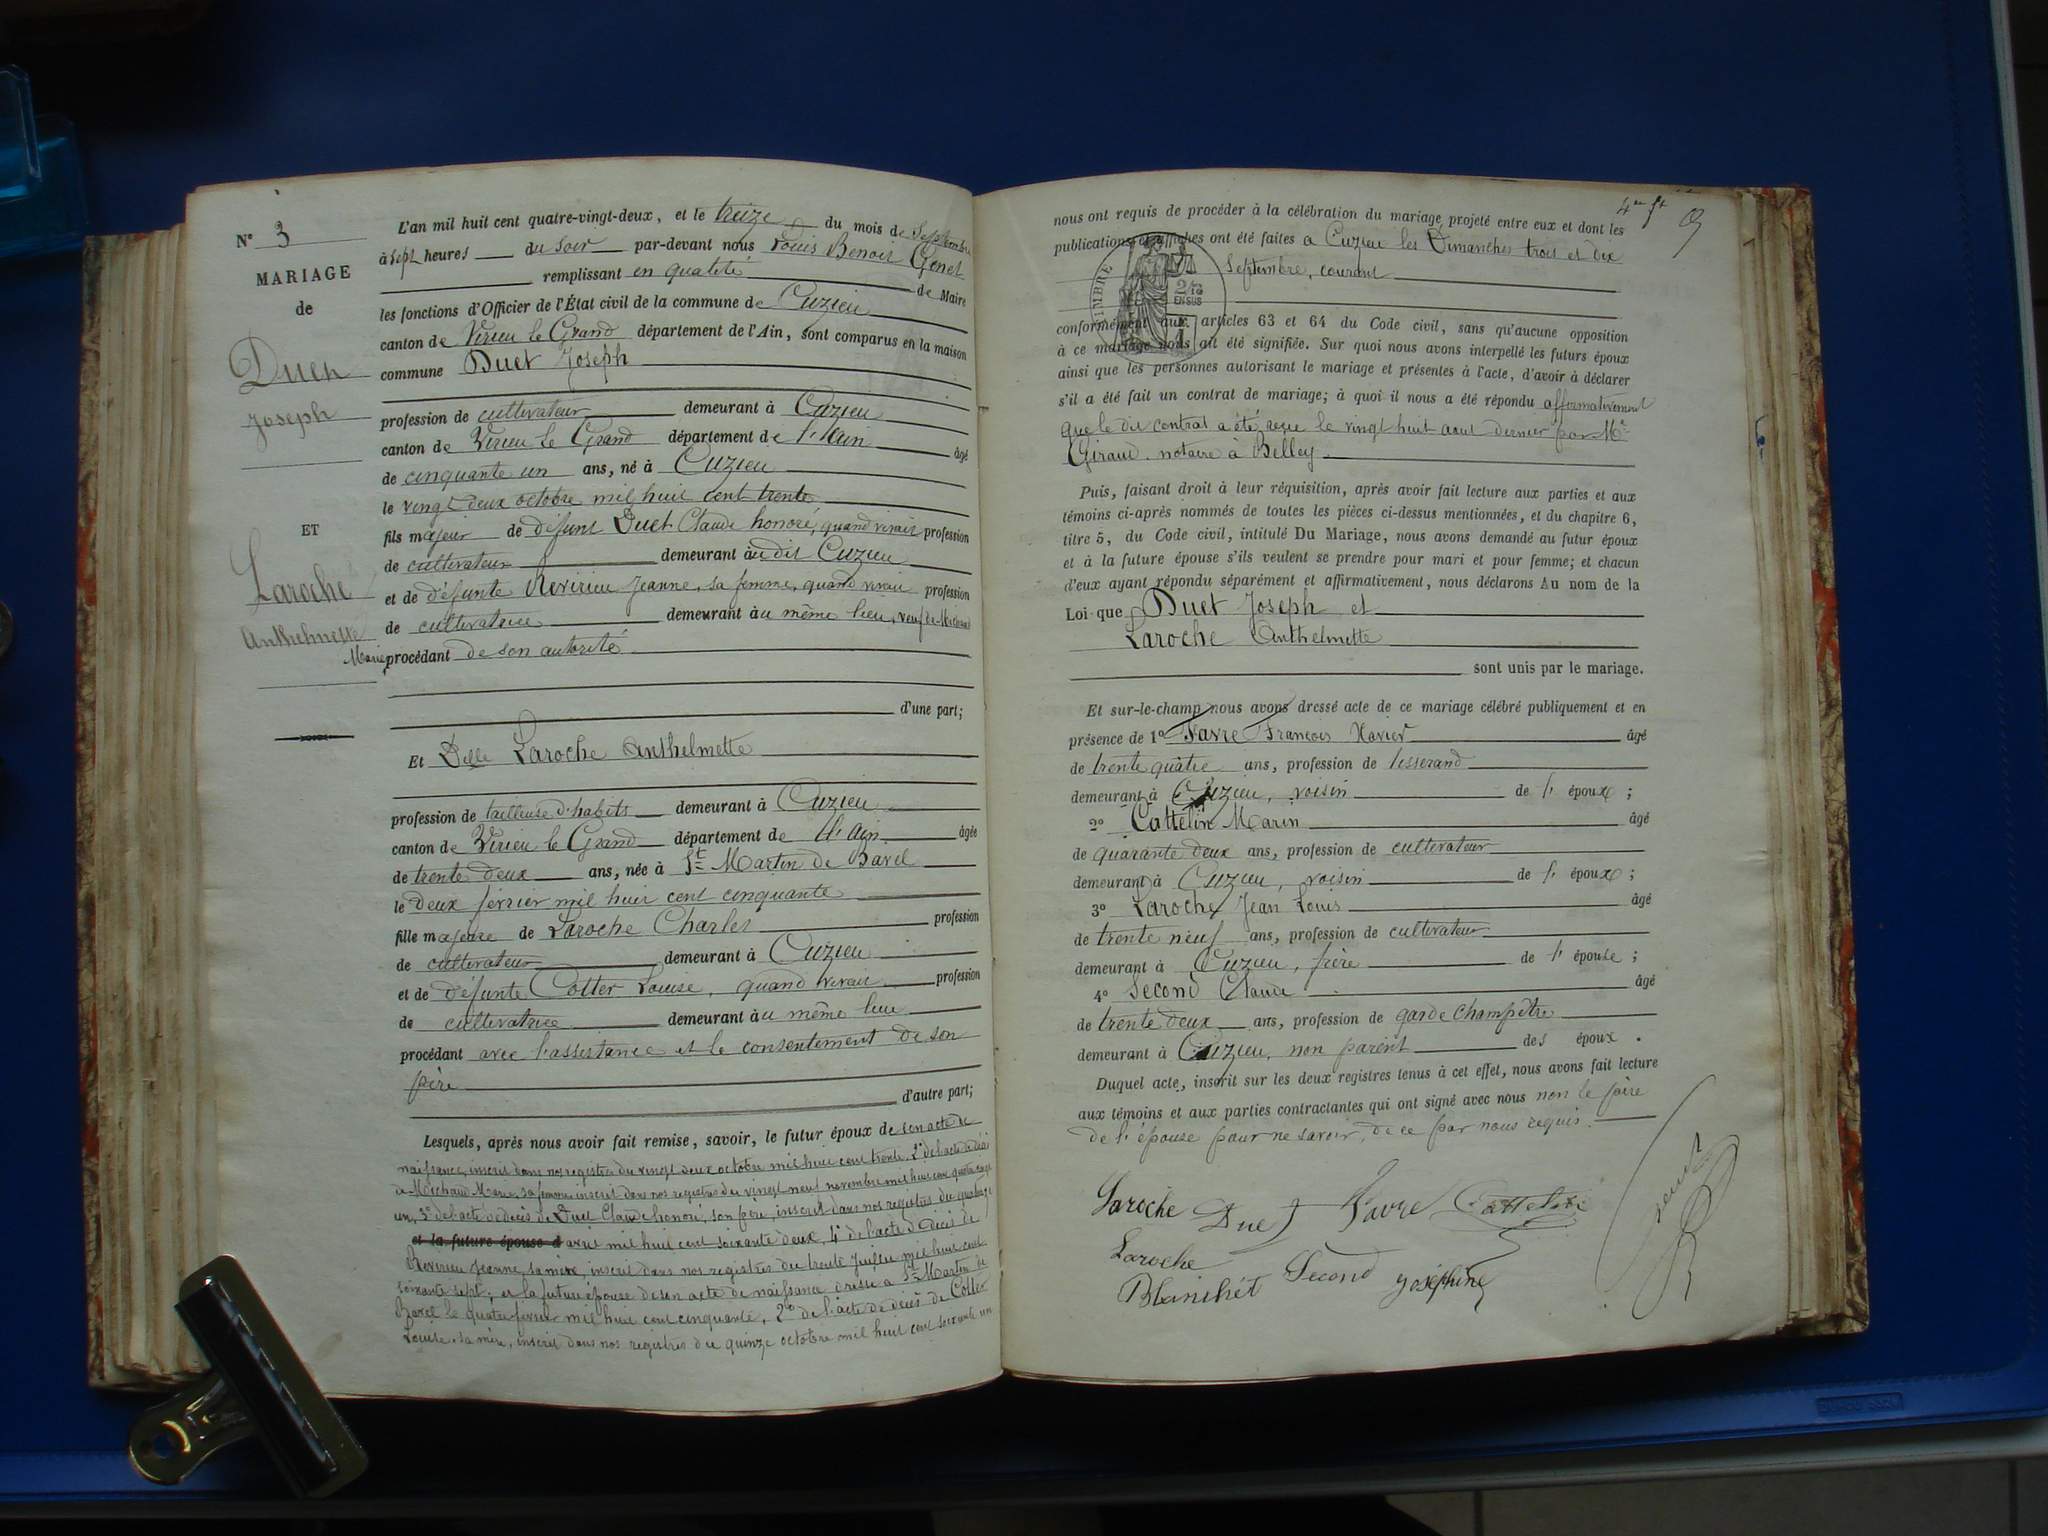 N° 3
MARIAGE
de
Duet
Joseph
ET
Laroche
Anthelmette
L'an mil huit cent quatre-vingt-deux, et le treize du mois de Septembre
à sept heures du soir par-devant nous Louis Benoit Genet
remplissant en qualité de Maire
les fonctions d'Officier de l'État civil de la commune de Cuzieu
canton de Virieu le Grand département de l'Ain, sont comparus en la maison
commune Duet Joseph
profession de cultivateur demeurant à Cuzieu
canton de Virieu le Grand département de l'Ain âgé
de cinquante un ans, né à Cuzieu
le vingt deux octobre mil huit cent trente
fils majeur de défunt Duet Claude honoré, quand vivait profession
de cultivateur demeurant au dit Cuzieu
et de défunte Revirieu Jeanne, sa femme, quand vivait profession
de cultivatrice demeurant au même lieu, veuf de Michaud
Marie, procédant de son autorité
d'une part;
Et Delle Laroche Anthelmette
profession de tailleuse d'habits demeurant à Cuzieu
canton de Virieu le Grand département de l'Ain âgée
de trente deux ans, née à St Martin de Bavel
le deux février mil huit cent cinquante
fille majeure de Laroche Charles profession
de cultivateur demeurant à Cuzieu
et de défunte Cotter Louise, quand vivait profession
de cultivatrice demeurant au même lieu
procédant avec l'assistance et le consentement de son
père
d'autre part;
Lesquels, après nous avoir fait remise, savoir, le futur époux de son acte de
naissance, inscrit dans nos registres du vingt deux octobre mil huit cent trente, 2° de l'acte de décès
de Michaud Marie, sa femme inscrit dans nos registres du vingt neuf novembre mil huit cent quatre vingt
un, 3° de l'acte de décès de Duet Claude honoré, son père, inscrit dans nos registres du quatorze
et la future épouse d avril mil huit cent soixante deux, 4° de l'acte de décès de
Revirieu Jeanne, sa mère, inscrit dans nos registres du trente Juillet mil huit cent
soixante sept; et la future épouse de son acte de naissance dressé à St Martin de
Bavel le quatre février mil huit cent cinquante, 2° de l'acte de décès de Cotter
Louise, sa mère, inscrit dans nos registres du quinze octobre mil huit cent soixante un
nous ont requis de procéder à la célébration du mariage projeté entre eux et dont les
publications et affiches ont été faites à Cuzieu les Dimanches trois et dix
Septembre, courant
TIMBRE
EN SUS
conformément aux articles 63 et 64 du Code civil, sans qu'aucune opposition
à ce mariage nous ait été signifiée. Sur quoi nous avons interpellé les futurs époux
ainsi que les personnes autorisant le mariage et présentes à l'acte, d'avoir à déclarer
s'il a été fait un contrat de mariage; à quoi il nous a été répondu affirmativement
que le dit contrat a été reçu le vingt huit aout dernier par Me
Giraud, notaire à Belley
Puis, faisant droit à leur réquisition, après avoir fait lecture aux parties et aux
témoins ci-après nommés de toutes les pièces ci-dessus mentionnées, et du chapitre 6,
titre 5, du Code civil, intitulé Du Mariage, nous avons demandé au futur époux
et à la future épouse s'ils veulent se prendre pour mari et pour femme; et chacun
d'eux ayant répondu séparément et affirmativement, nous déclarons Au nom de la
Loi que Duet Joseph et
Laroche Anthelmette
sont unis par le mariage.
Et sur-le-champ nous avons dressé acte de ce mariage célébré publiquement et en
présence de 1° Favre François Xavier âgé
de trente quatre ans, profession de tisserand
demeurant à Cuzieu, voisin de l' époux ;
2° Cattelin Marin âgé
de quarante deux ans, profession de cultivateur
demeurant à Cuzieu, voisin de l' époux ;
3° Laroche Jean Louis âgé
de trente neuf ans, profession de cultivateur
demeurant à Cuzieu, frère de l' épouse ;
4° Second Claude âgé
de trente deux ans, profession de garde champêtre
demeurant à Cuzieu, non parent des époux .
Duquel acte, inscrit sur les deux registres tenus à cet effet, nous avons fait lecture
aux témoins et aux parties contractantes qui ont signé avec nous non le père
de l'épouse pour ne savoir, de ce par nous requis.
Laroche Duet Favre Cattelin
Laroche Second Joséphine
Blanchet